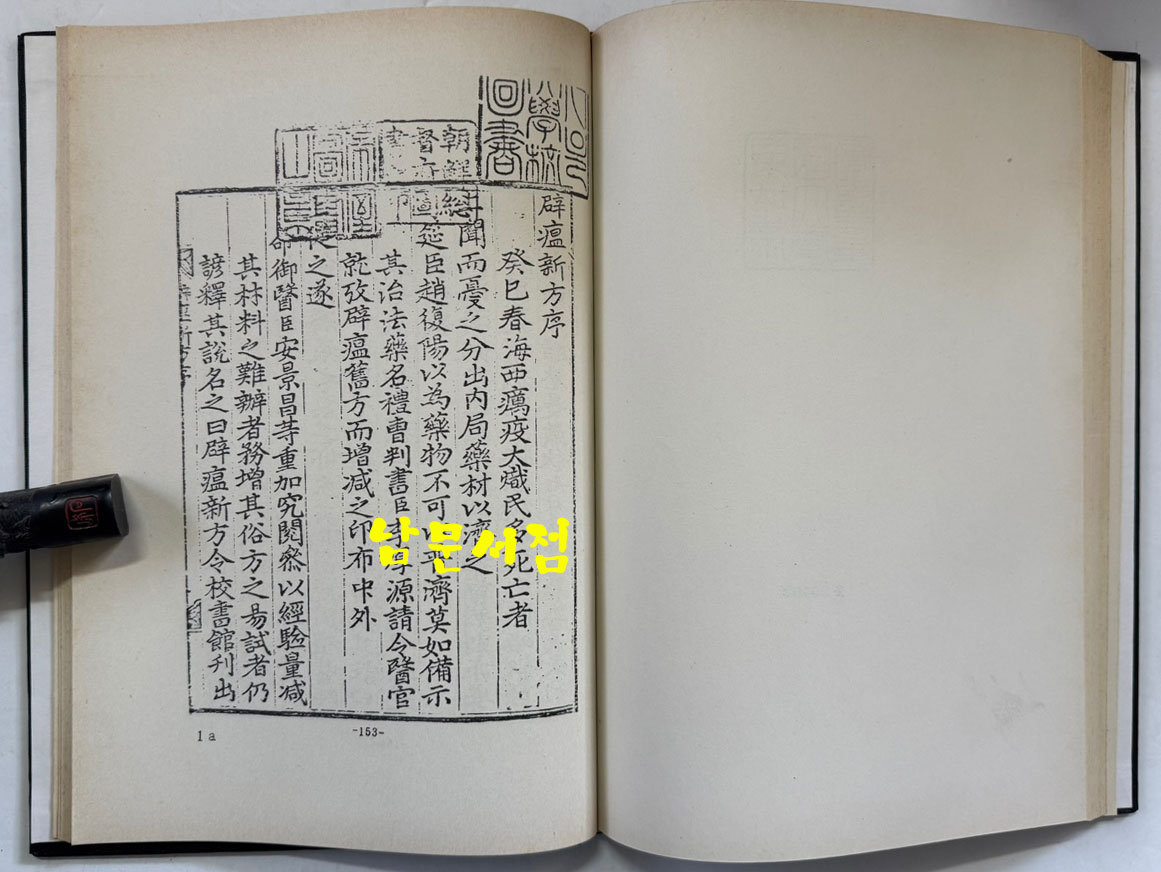 辟瘟新方序
癸巳春海西癘疫大熾民多死亡者
聞而憂之分出內局藥材以濟之
筵臣趙復陽以為藥物不可濟莫如備示
其治法藥名禮曹判書臣李源請令醫官
就攷辟瘟舊方而增減之印布中外
之遂
命御醫臣安景昌䒭重加究閱叅以經驗量減
其材料之難辦者務增其俗方之易試者仍
諺釋其說名之曰辟瘟新方令校書館刊出
朝鮮總
督府圖
1 a
-153-
남문서점